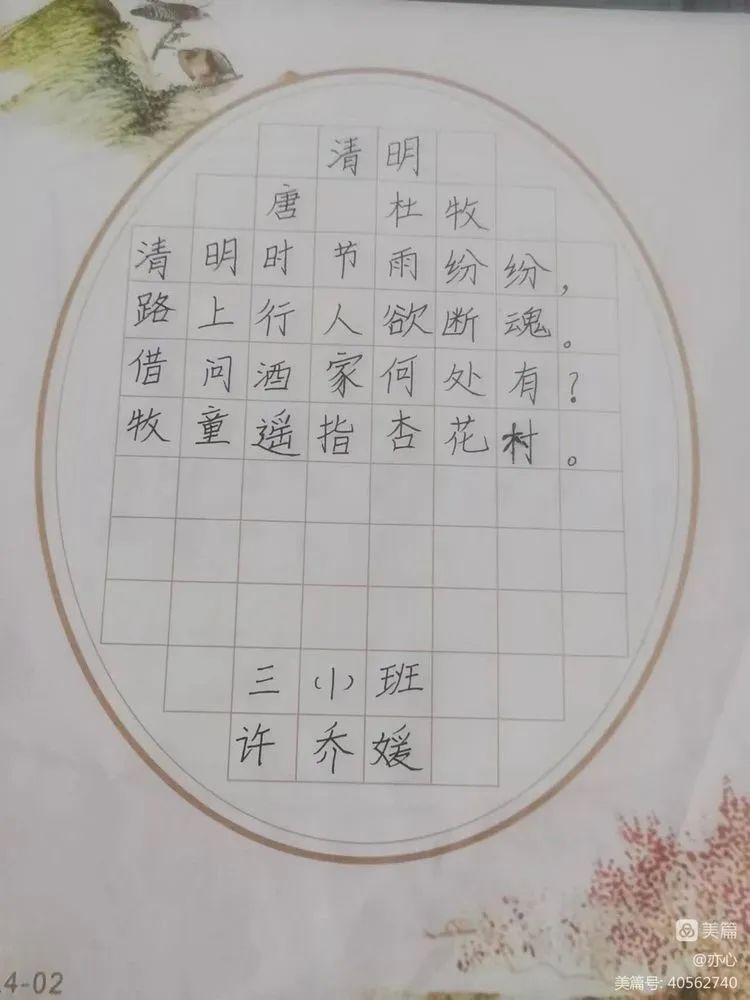 清明
唐 杜牧
清明时节雨纷纷，
路上行人欲断魂。
借问酒家何处有？
牧童遥指杏花村。
三(1)班
许乔媛
4-02
美篇
@亦心
美篇号: 40562740